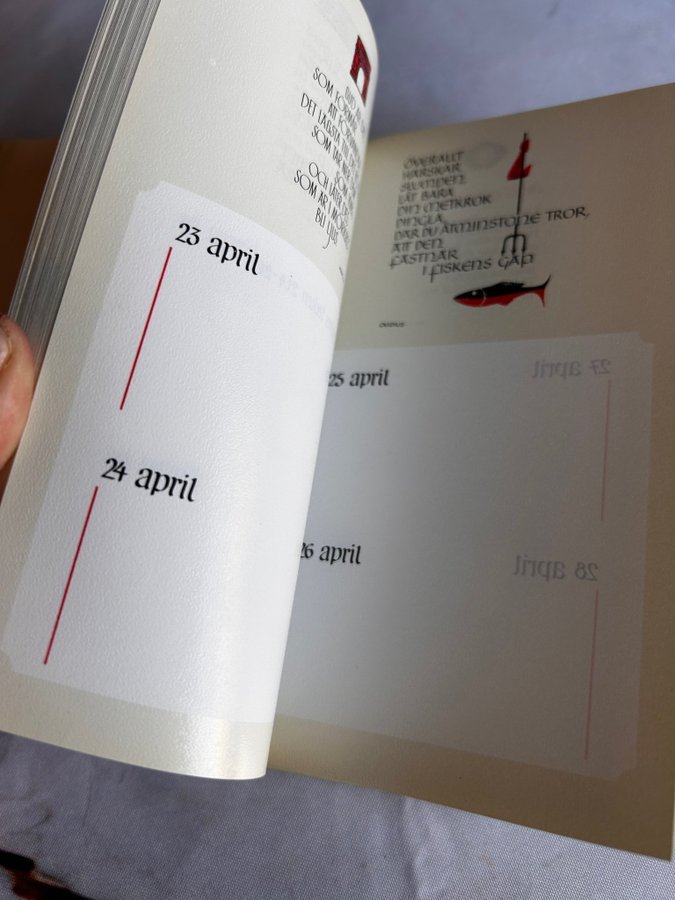 SOM
DET LÄGSTA
SOM VAR
OCH LÅTER
SOM ÄR I
BLI LJUS
23 april
24 april
ÖVERALLT
HÄRSKAR
SLUMPEN.
LÅT BARA
DIN METKROK
DINGLA.
DÄR DU ÅTMINSTONE TROR,
ATT DEN
FASTNAR
I FISKENS GAP
OVIDIUS
25 april
26 april
27 april
28 april